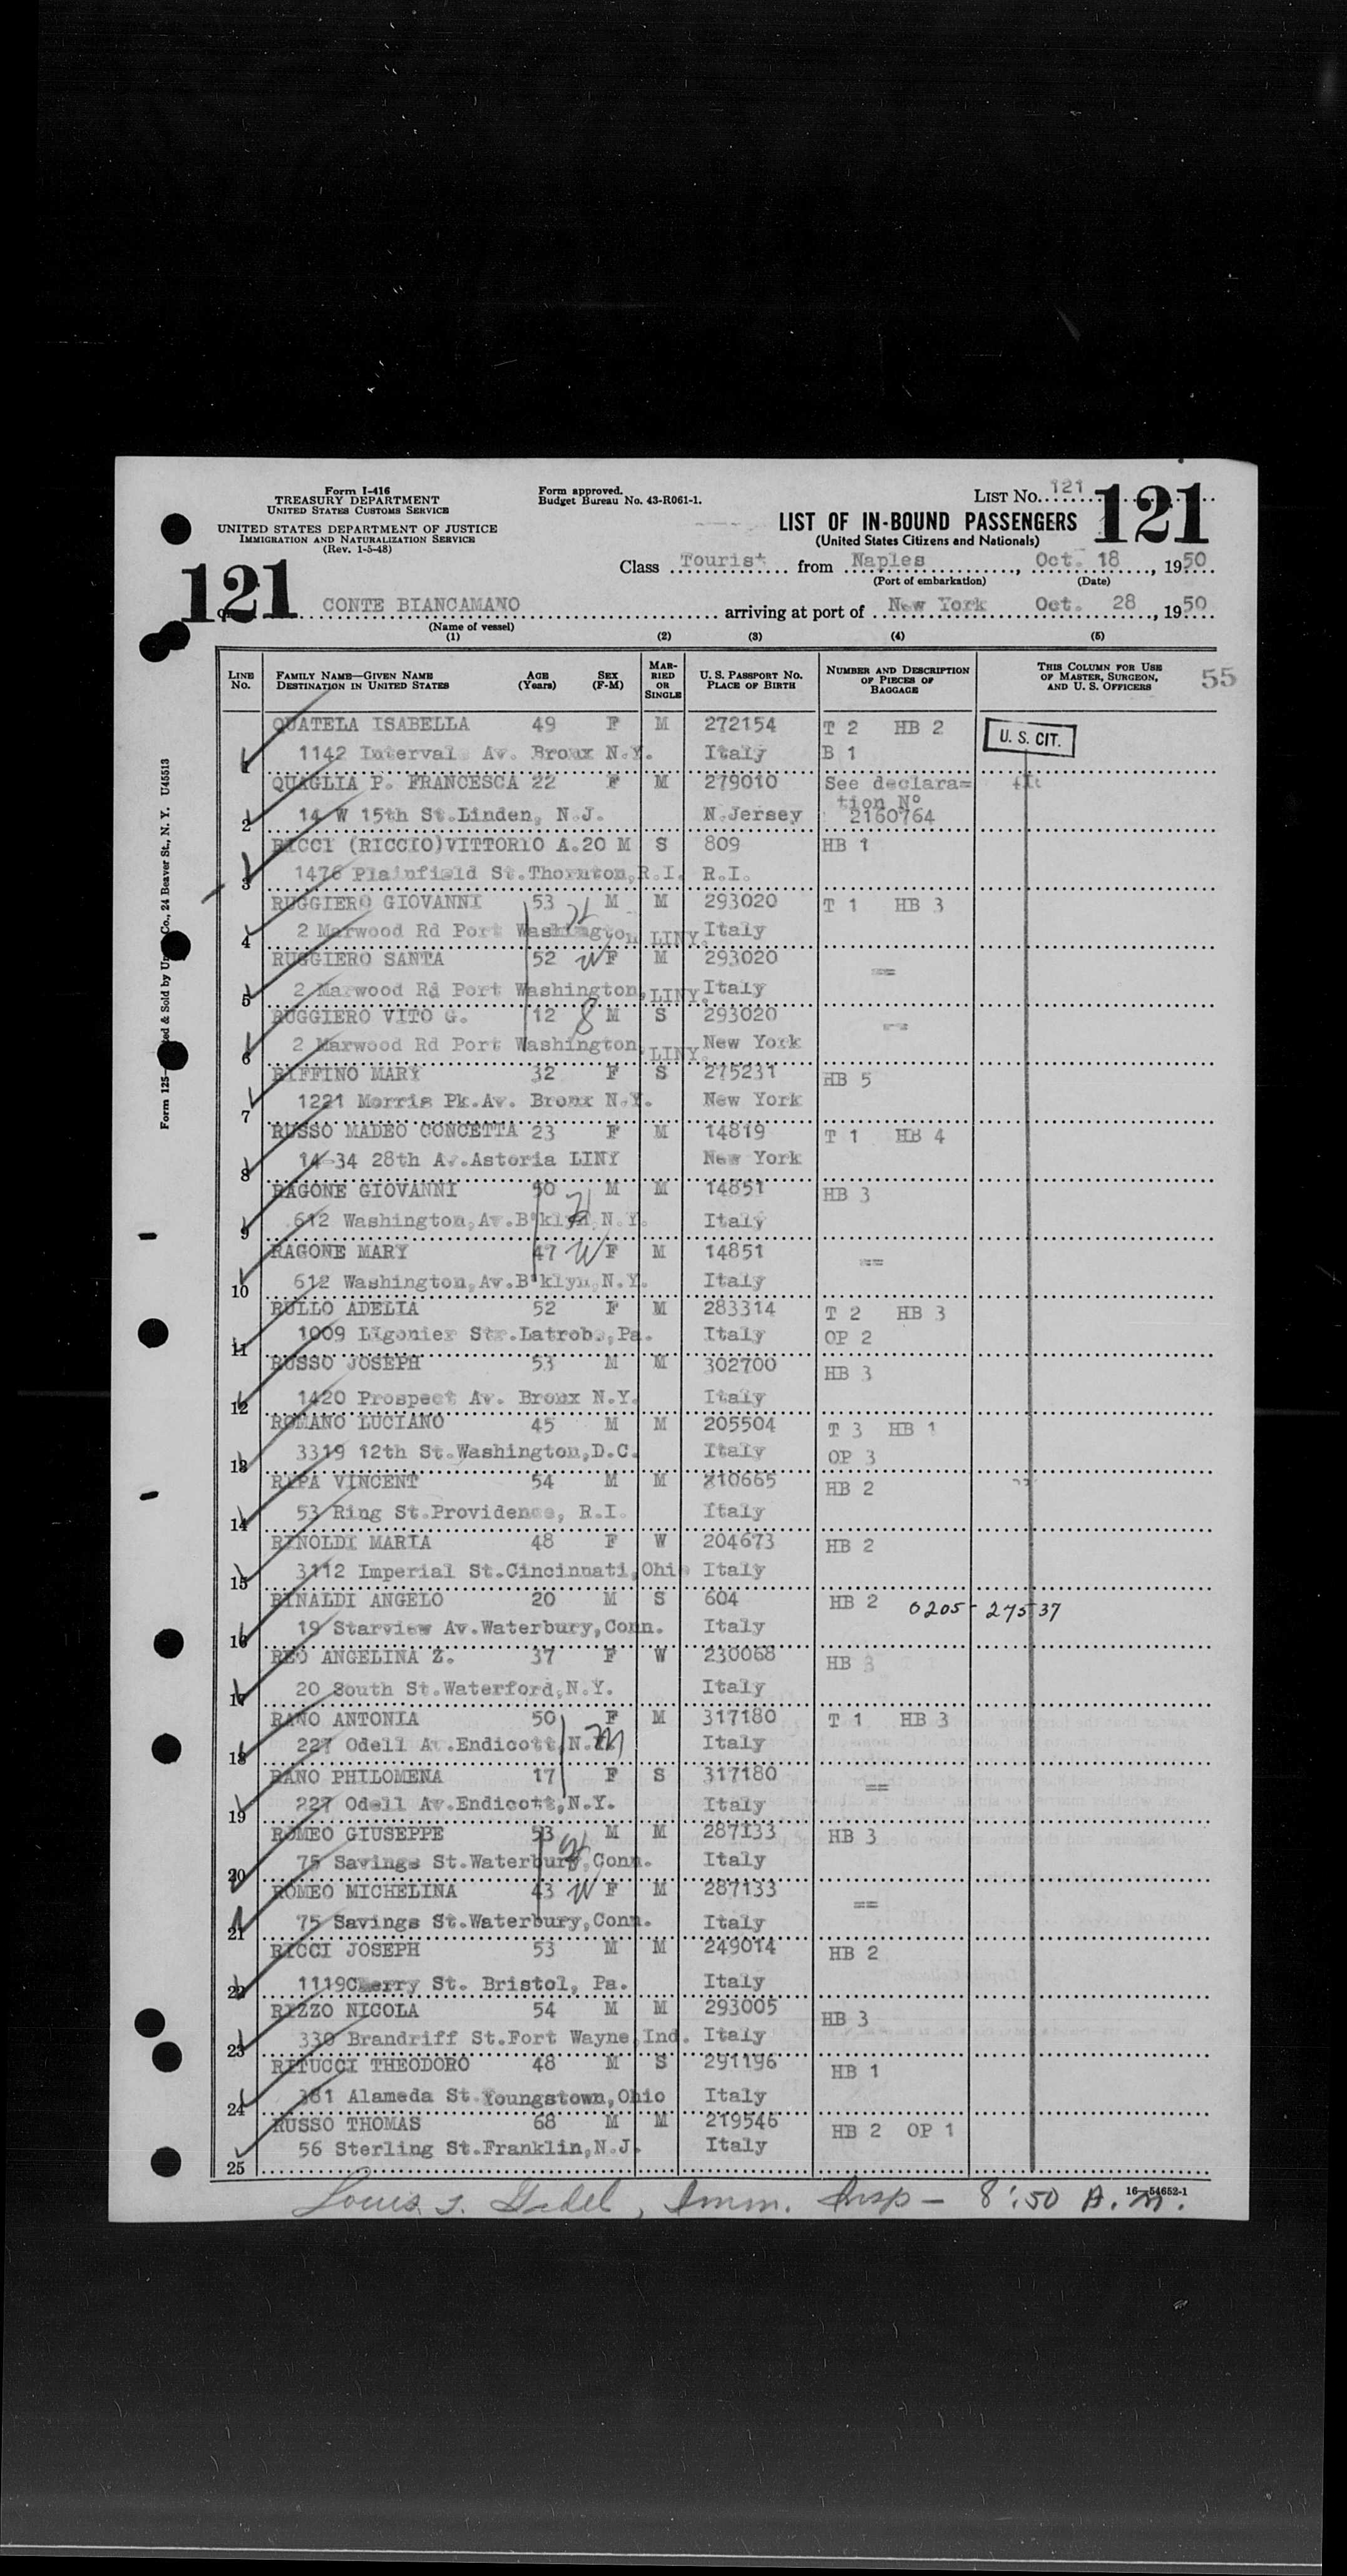 Form I-416
TREASURY DEPARTMENT
UNITED STATES CUSTOMS SERVICE
UNITED STATES DEPARTMENT OF JUSTICE
IMMIGRATION AND NATURALIZATION SERVICE
(Rev. 1-5-48)
Form approved.
Budget Bureau No. 43-R061-1.
LIST No. 121
121
LIST OF IN-BOUND PASSENGERS
(United States Citizens and Nationals)
Class Tourist from Naples, Oct. 18, 1950
(Port of embarkation) (Date)
121
CONTE BIANCAMANO arriving at port of New York Oct. 28, 1950
(Name of vessel)
(1) (2) (3) (4) (5)
LINE No. FAMILY NAME—GIVEN NAME DESTINATION IN UNITED STATES AGE (Years) SEX (F-M) MARRIED OR SINGLE U. S. PASSPORT NO. PLACE OF BIRTH NUMBER AND DESCRIPTION OF PIECES OF BAGGAGE THIS COLUMN FOR USE OF MASTER, SURGEON, AND U. S. OFFICERS 55
QUATELA ISABELLA 49 F M 272154 T 2 HB 2 U. S. CIT.
1 1142 Interval Av. Bronx N.Y. Italy B 1
QUAGLIA P. FRANCESCA 22 F M 279010 See declara=
tion Nº
2 14 W 15th St.Linden, N.J. N.Jersey 2160764
RICCI (RICCIO)VITTORIO A.20 M S 809 HB 1
3 1476 Plainfield St.Thornton,R.I. R.I.
RUGGIERO GIOVANNI 53 M M 293020 T 1 HB 3
4 2 Marwood Rd Port Washington LINY. Italy
RUGGIERO SANTA 52 W F M 293020 ==
5 2 Marwood Rd Port Washington,LINY. Italy
RUGGIERO VITO G. 12 8 M S 293020 ==
6 2 Marwood Rd Port Washington,LINY. New York
RIFFINO MARY 32 F S 275231 HB 5
7 1221 Morris Pk.Av. Bronx N.Y. New York
RUSSO MADEO CONCETTA 23 F M 14819 T 1 HB 4
8 14-34 28th Av.Astoria LINY New York
RAGONE GIOVANNI 50 M M 14851 HB 3
9 612 Washington,Av.B'klyn,N.Y. Italy
RAGONE MARY 47 W F M 14851 ==
10 612 Washington,Av.B'klyn,N.Y. Italy
RULLO ADELIA 52 F M 283314 T 2 HB 3
11 1009 Ligonier Str.Latrobe,Pa. Italy OP 2
RUSSO JOSEPH 53 M M 302700 HB 3
12 1420 Prospect Av. Bronx N.Y. Italy
ROMANO LUCIANO 45 M M 205504 T 3 HB 1
13 3319 12th St.Washington,D.C. Italy OP 3
RIPA VINCENT 54 M M 210665 HB 2
14 53 Ring St.Providence, R.I. Italy
RINOLDI MARIA 48 F W 204673 HB 2
15 3112 Imperial St.Cincinnati,Ohio Italy
RINALDI ANGELO 20 M S 604 HB 2 0205-27537
16 19 Starview Av.Waterbury,Conn. Italy
REO ANGELINA Z. 37 F W 230068 HB 3
17 20 South St.Waterford,N.Y. Italy
RANO ANTONIA 50 F M 317180 T 1 HB 3
18 227 Odell Av.Endicott,N.Y. M Italy
RANO PHILOMENA 17 F S 317180 ==
19 227 Odell Av.Endicott,N.Y. Italy
ROMEO GIUSEPPE 53 M M 287133 HB 3
20 75 Savings St.Waterbury,Conn. Italy
ROMEO MICHELINA 43 W F M 287133 ==
21 75 Savings St.Waterbury,Conn. Italy
RICCI JOSEPH 53 M M 249014 HB 2
22 1119Cherry St. Bristol, Pa. Italy
RIZZO NICOLA 54 M M 293005 HB 3
23 330 Brandriff St.Fort Wayne,Ind. Italy
RITUCCI THEODORO 48 M S 291196 HB 1
24 381 Alameda St.Youngstown,Ohio Italy
RUSSO THOMAS 68 M M 219546 HB 2 OP 1
56 Sterling St.Franklin,N.J. Italy
25
16—54652-1
Louis, Imm. Insp — 8:50 A.M.
Form 125— ed & Sold by Co., 24 Beaver St., N. Y. U45513